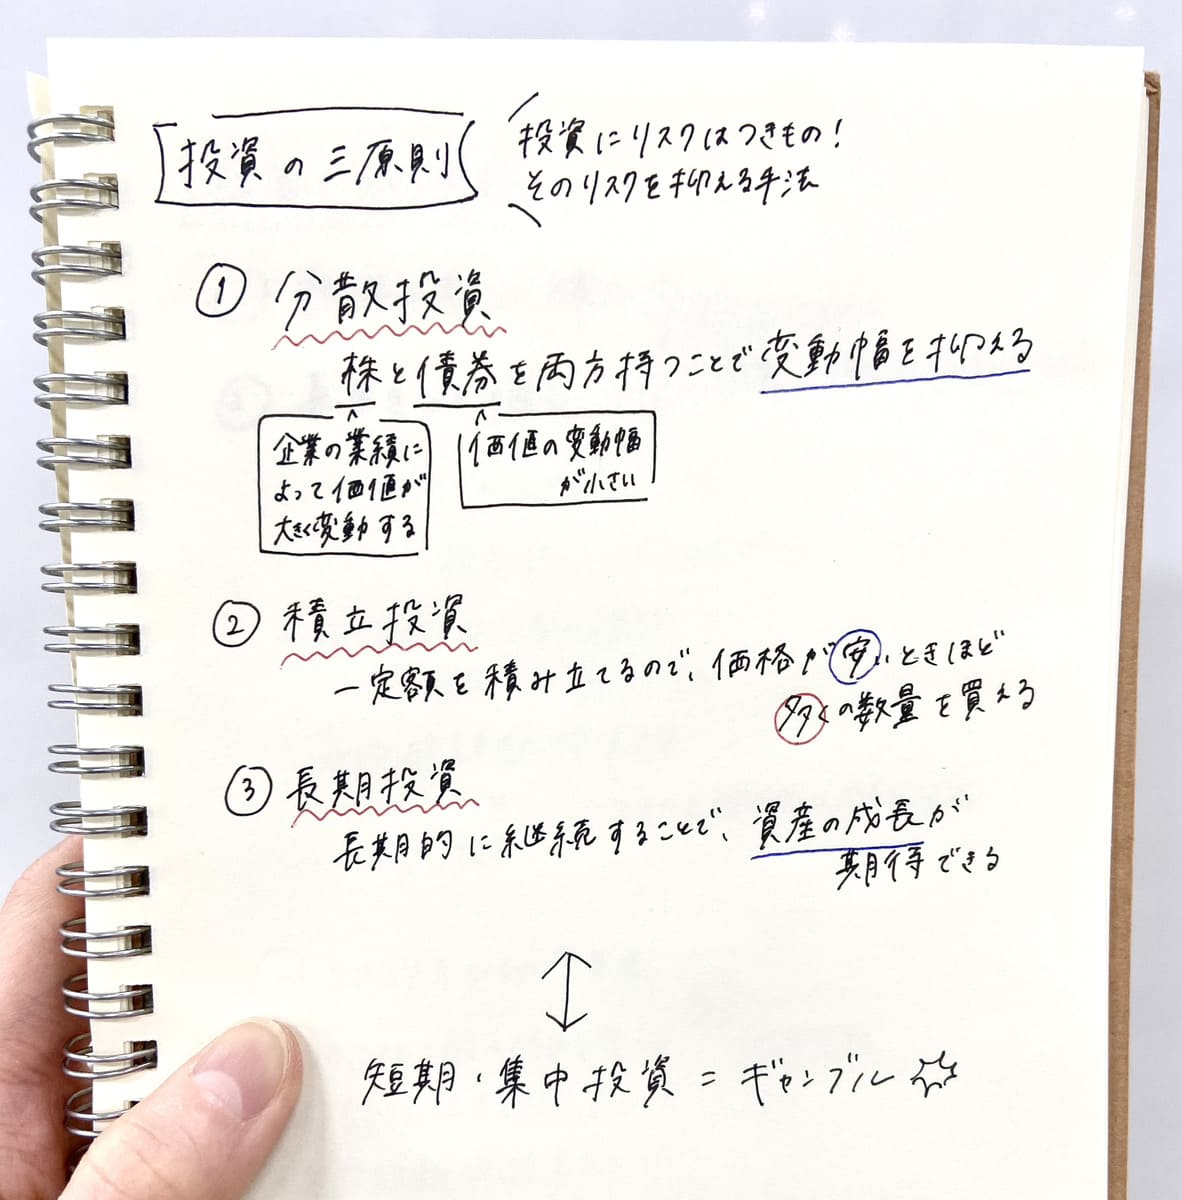 投資の三原則
投資にリスクはつきもの!
そのリスクを抑える手法
① 分散投資
株と債券を両方持つことで変動幅を抑える
企業の業績に
よって価値が
大きく変動する
価値の変動幅
が小さい
② 積立投資
一定額を積み立てるので、価格が安いときほど
多くの数量を買える
③ 長期投資
長期的に継続することで、資産の成長が
期待できる
短期・集中投資=ギャンブル